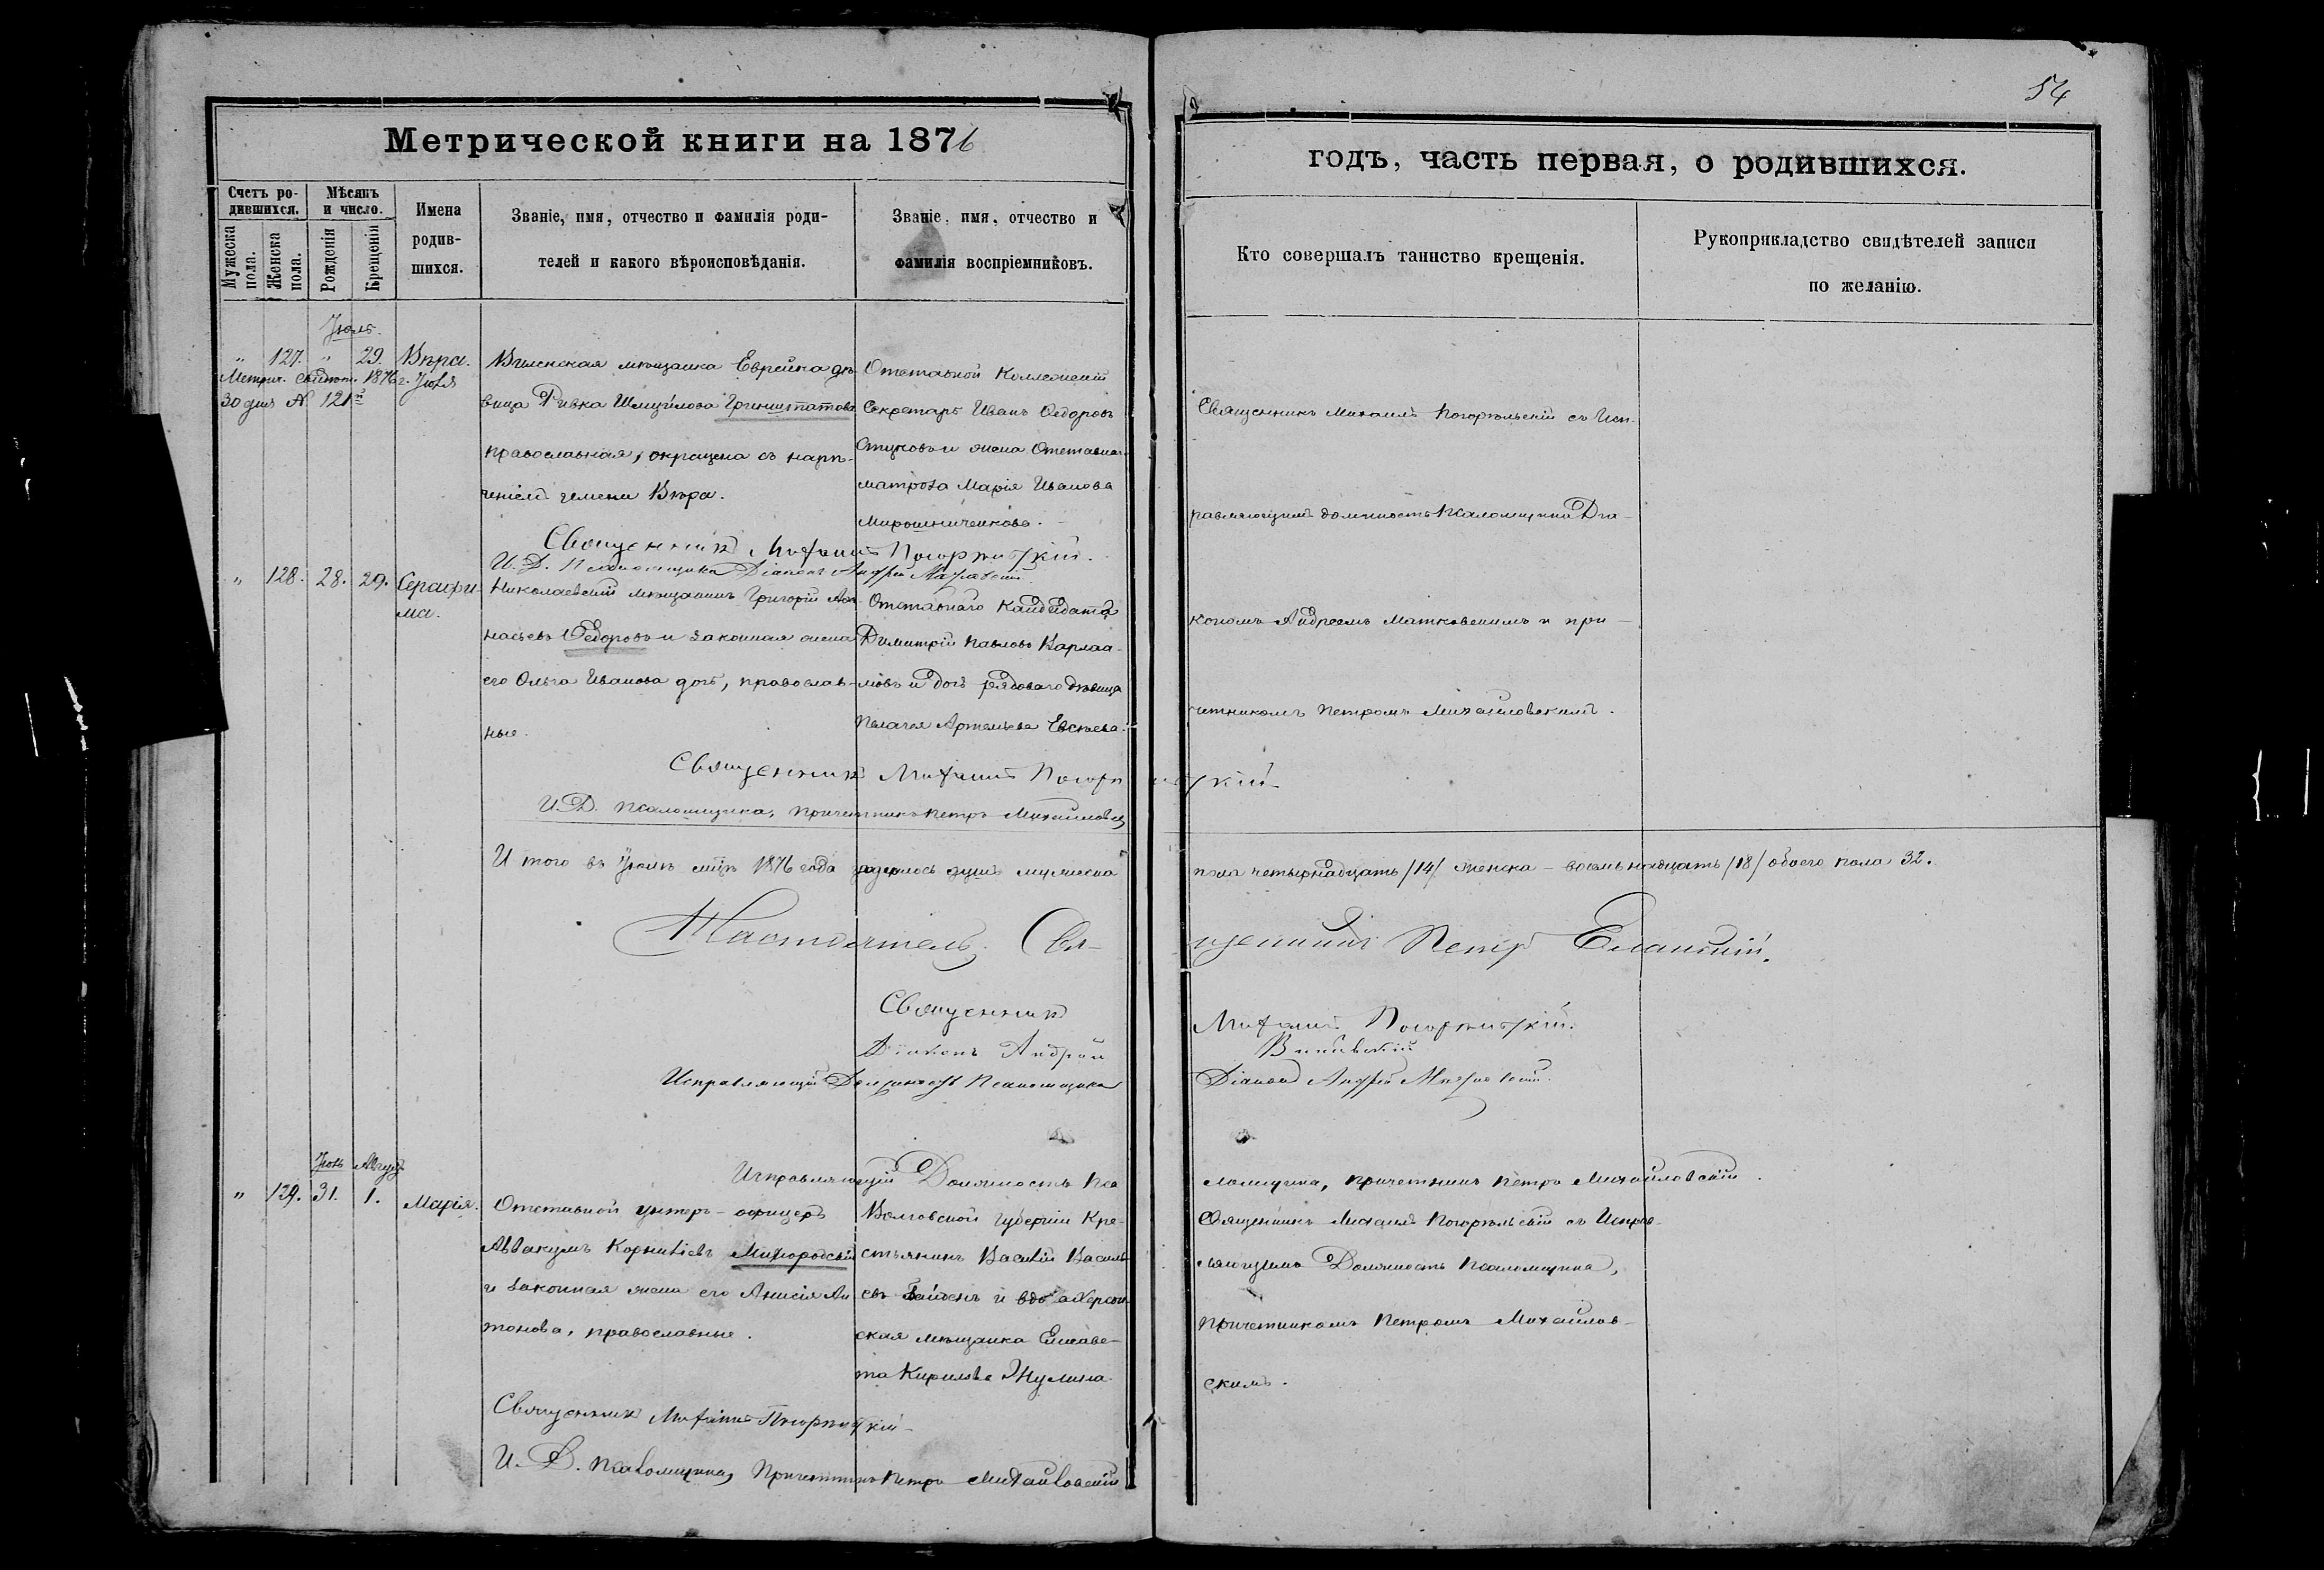 54
Метрической книги на 1876
годъ, часть первая, о родившихся.
Счетъ ро-
дившихся.
Мужеска пола.
Женска пола.
Мѣсяцъ
и число.
Рожденія
Крещенія
Имена
родив-
шихся.
Званіе, имя, отчество и фамилія роди-
телей и какого вѣроисповѣданія.
Званіе, имя, отчество и
фамилія воспріемниковъ.
Кто совершалъ таинство крещенія.
Рукоприкладство свидѣтелей записи
по желанію.
Іюль.
" 127. " 29. Вѣра.
Метрич. свидѣт. 1876 г. Іюля
30 дня № 121
Виленская мѣщанка Еврейка дѣ-
вица Ривка Шмуйлова
православная, окрещена съ наре-
ченіемъ имени Вѣра.
Отставной Коллежскій
Секретарь Иванъ Ѳедоровъ
и жена Отставнаго
матроза Марія Иванова
Мирошниченкова.
Священникъ Михаилъ Погорѣльскій съ Исп-
равляющимъ должность Псаломщика Діа-
кономъ Андреемъ Матковскимъ и при-
четникомъ Петромъ Михайловскимъ.
Священникъ Михаилъ Погорѣльскій.
И. Д. Псаломщика Діаконъ Андрей
" 128. 28. 29. Серафи-
ма.
Николаевскій мѣщанинъ Григорій Аѳа-
насьевъ Ѳедоровъ и законная жена
его Ольга Иванова дочь, православ-
ные.
Отставнаго Кандидата
Димитрій Павловъ Варлаа-
мовъ и дочь рядоваго дѣвица
Пелагея Артемьева
Священникъ Михаилъ Погорѣльскій
И. Д. Псаломщика, Причетникъ Петръ Михайловскій
И того въ Іюлѣ мцѣ 1876 года родилось душъ мужеска
пола четырнадцать /14/ женска – восемьнадцать /18/ обоего пола 32.
Настоятель. Свя-
щенникъ Петръ Еланскій.
Священникъ
Михаилъ Погорѣльскій.
Діаконъ Андрей
Исправляющій Должность Псаломщика
Діаконъ Андрей
Исправляющій Должность Пса
ломщика, причетникъ Петръ Михайловскій.
Іюль Август
" 129. 31. 1. Марія.
Отставной унтеръ-офицеръ
Аввакумъ Корниліевъ
и законная жена его Анисія Ан
тонова, православные.
губерніи Кре-
стьянинъ Василій Василь-
евъ и вдова Херсон-
ская мѣщанка Елисаве-
та Кирилова Жулина.
Священникъ Михаилъ Погорѣльскій съ Исправ-
ляющимъ Должность Псаломщика,
Причетникомъ Петромъ Михайлов-
скимъ.
Священникъ Михаилъ Погорѣльскій
И. Д. Псаломщика, Причетникъ Петръ Михайловскій